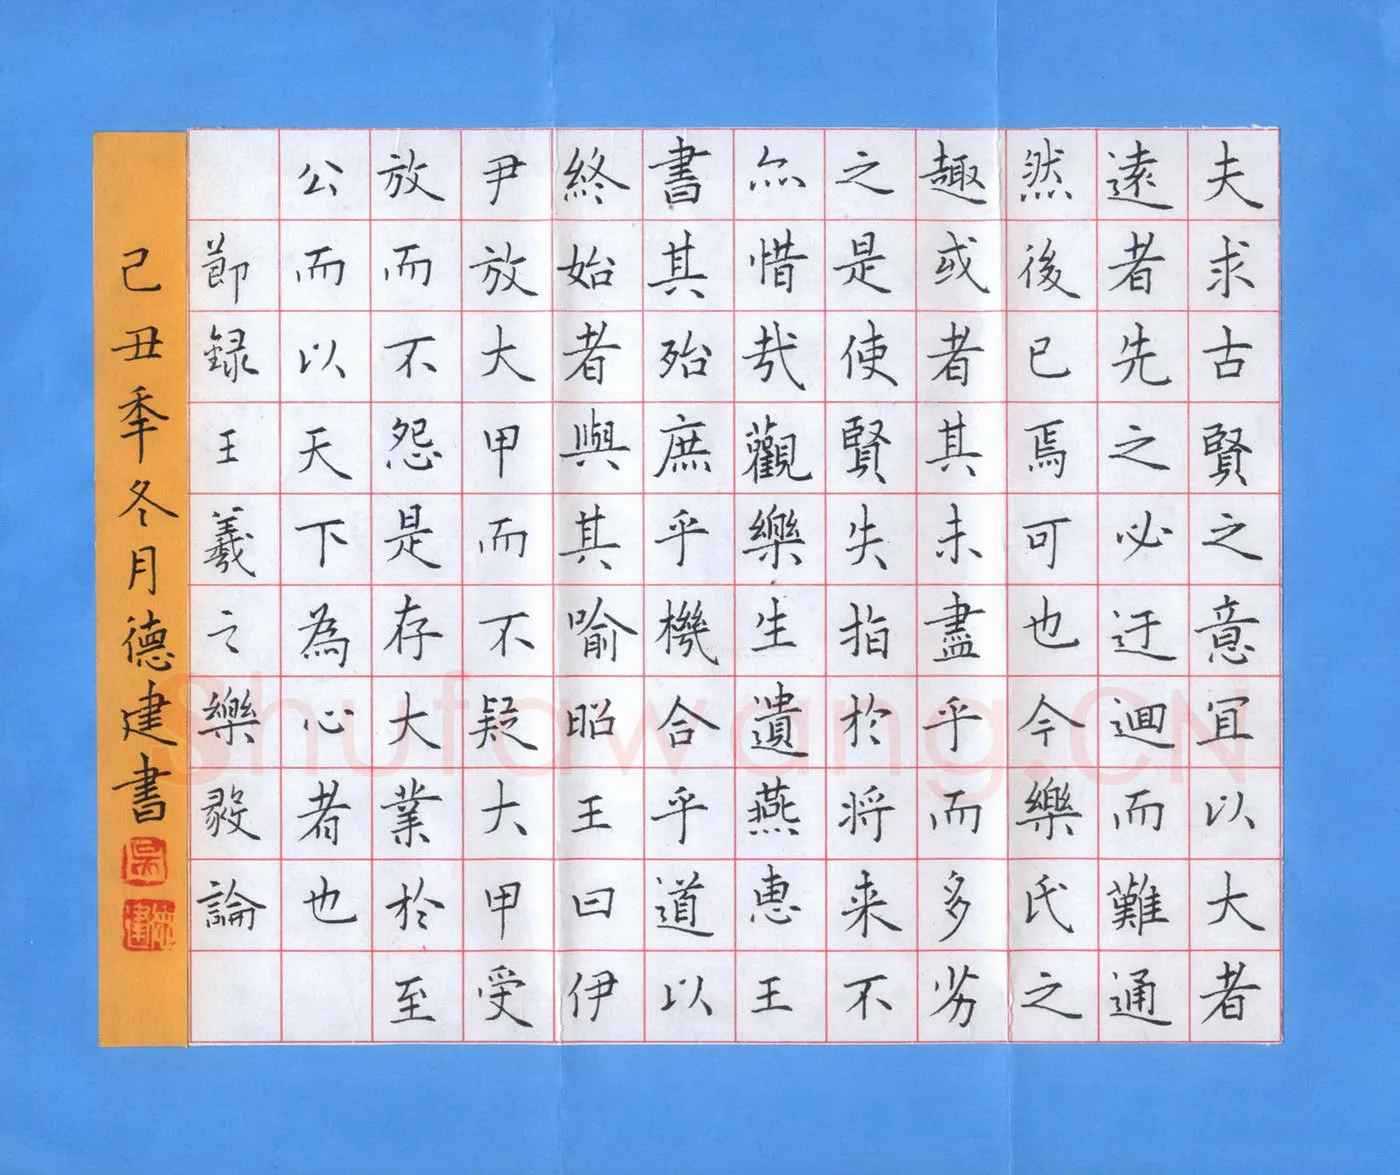 夫求古賢之意冝以大者
遠者先之必迂迴而難通
然後已焉可也今樂氏之
趣或者其未盡乎而多劣
之是使賢失指於将来不
亦惜哉觀樂生遺燕恵王
書其殆庶乎機合乎道以
終始者與其喻昭王曰伊
尹放大甲而不疑大甲受
放而不怨是存大業於至
公而以天下為心者也
節録王羲之樂毅論
己丑季冬月德建書
Shufawang.CN